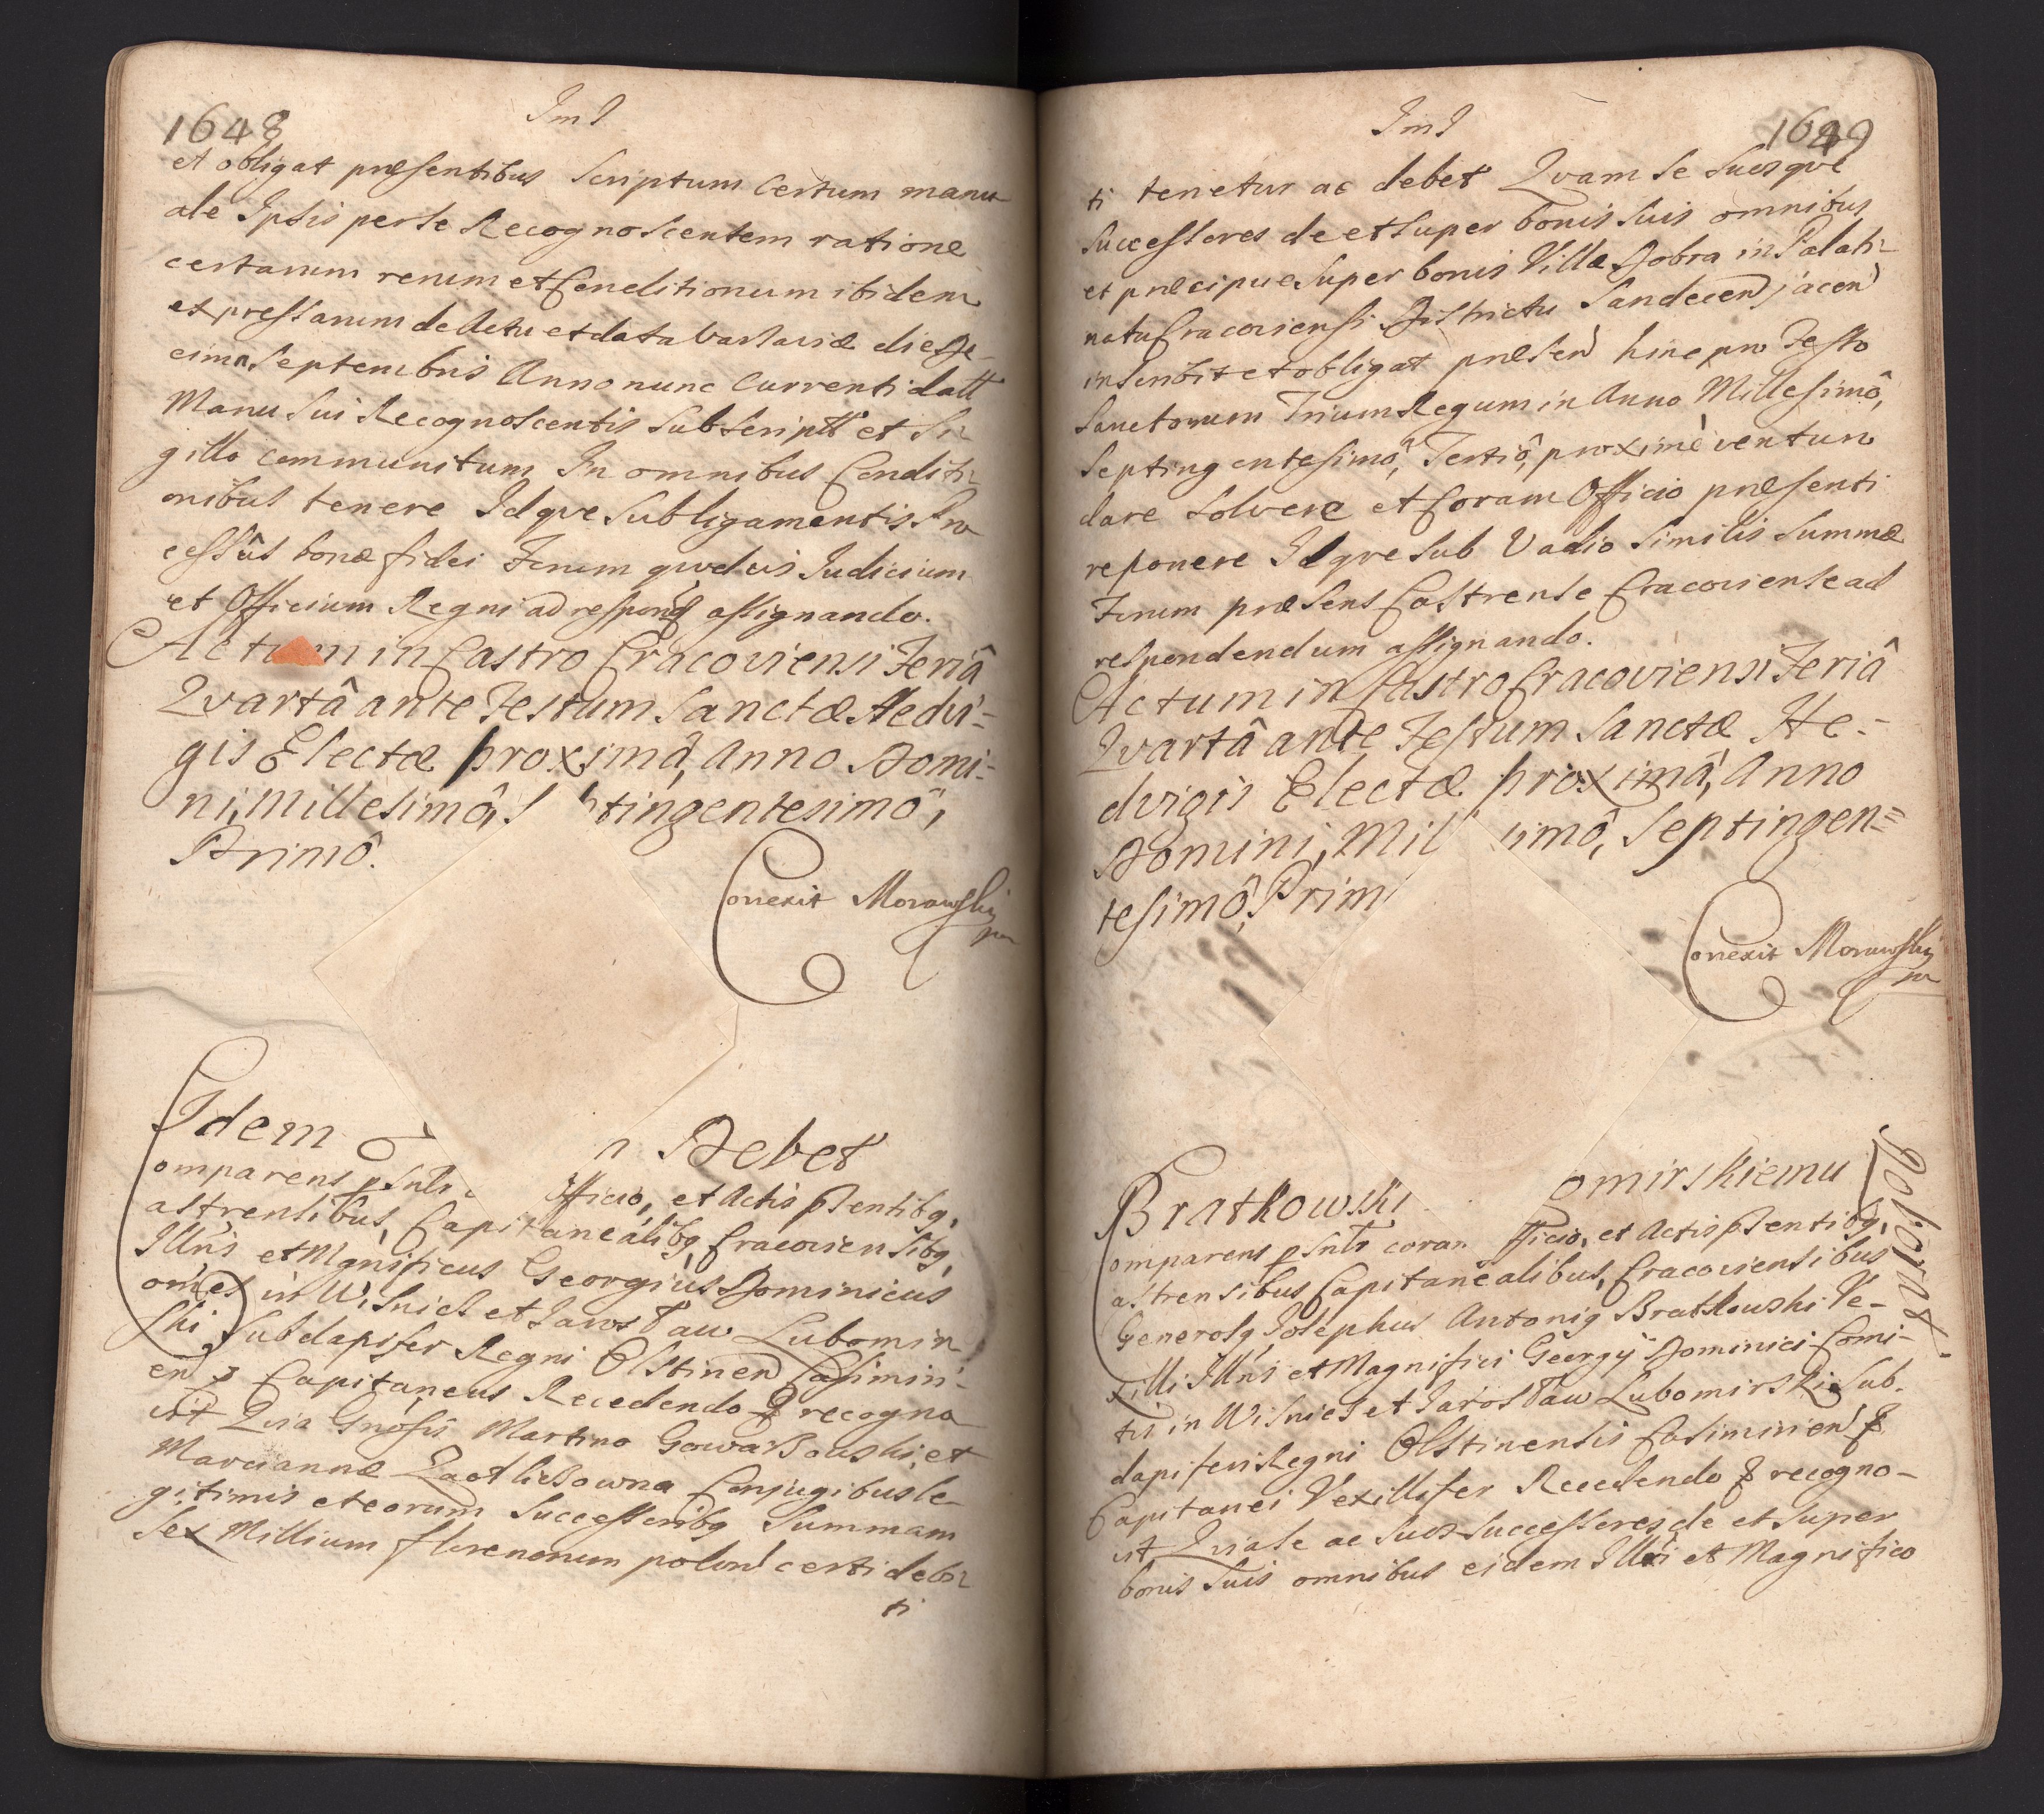 1648
JmJ
et obligat præsentibus Scriptum Certum manu-
ale Ipsis per se Recognoscentem ratione
certarum rerum et Conditionum ibidem
expressarum de Actu et data Varsaviæ die De-
cima Septembris Anno nunc Currenti datt
Manu Sui Recognoscentis Subscriptt et Si-
gillo communitum In omnibus Conditi-
onibus tenere Idqve Subligamentis Pro
cessûs bonæ fidei Forum qvodvis Iudicium
et Officium Regni ad respond assignando.
Actum in Castro Cracoviensi Feriâ
Qvartâ ante Festum Sanctæ Hedvi=
gis Electæ proximâ, Anno Domi=
ni, Millesimô, S ptingentesimô,
Primô.
Conexit Morawski
mp
Idem
Debet
Comparens psntr Officio, et Actis psentibq,
Castrensibus, Capitanealibq, Cracoviensibq,
Illr̃is et Mgnificus Georgius Dominicus
Comes in Wisnicz et Jarosław Lubomir
ski Subdapifer Regni Olstinen Casimiri-
en & Capitaneus Recedendo & recogno
vit Qvia Gnosis Martino Gowarkowski, et
Mariannæ Conjugibus le-
gitimis et eorum Successoribq Summam
Sex Millium florenorum polonl certi debi-
ti
JmJ
1649
ti tenetur ac debet Qvam Se Suosqve
Successores de et Super bonis Suis omnibus
et præcipue Super bonis Villæ Dobra in Palati-
natu Cracoviensi Districtu Sandecen jacen
inscribit et obligat præsen hinc pro Festo
Sanctorum Trium Regum in Anno Millesimô,
Septingentesimô, Tertiô, proximè venturo
dare Solvere et Coram Officio præsenti
reponere Idqve Sub Vadio Similis Summæ
Forum præsens Castrense Cracoviense ad
respondendum assignando.
Actum in Castro Cracoviensi Feriâ
Qvartâ ante Festum Sanctæ He=
dvigis Electæ proximâ, Anno
Domini, Mil simô, Septingen=
tesimô, Prim
Conexit Morawski
mp
Bratkowski omirskiemu
roborat
Comparens psntr coram fficio, et Actis psentibq,
Castrensibus Capitanealibus, Cracoviensibus
Generosq Josephus Antoniq Bratkowski Ve-
xilli Illr̃is et Magnifici Georgij Dominici Comi-
tis in Wisnicz et Jarosław Lubomirski Sub-
dapiferi Regni Olstinensis Casimirien &
Capitanei Vexillifer Recedendo & recogno-
vit Qvia Se ac Suos Successores de et Super
bonis Suis omnibus eidem Illri et Magnifico